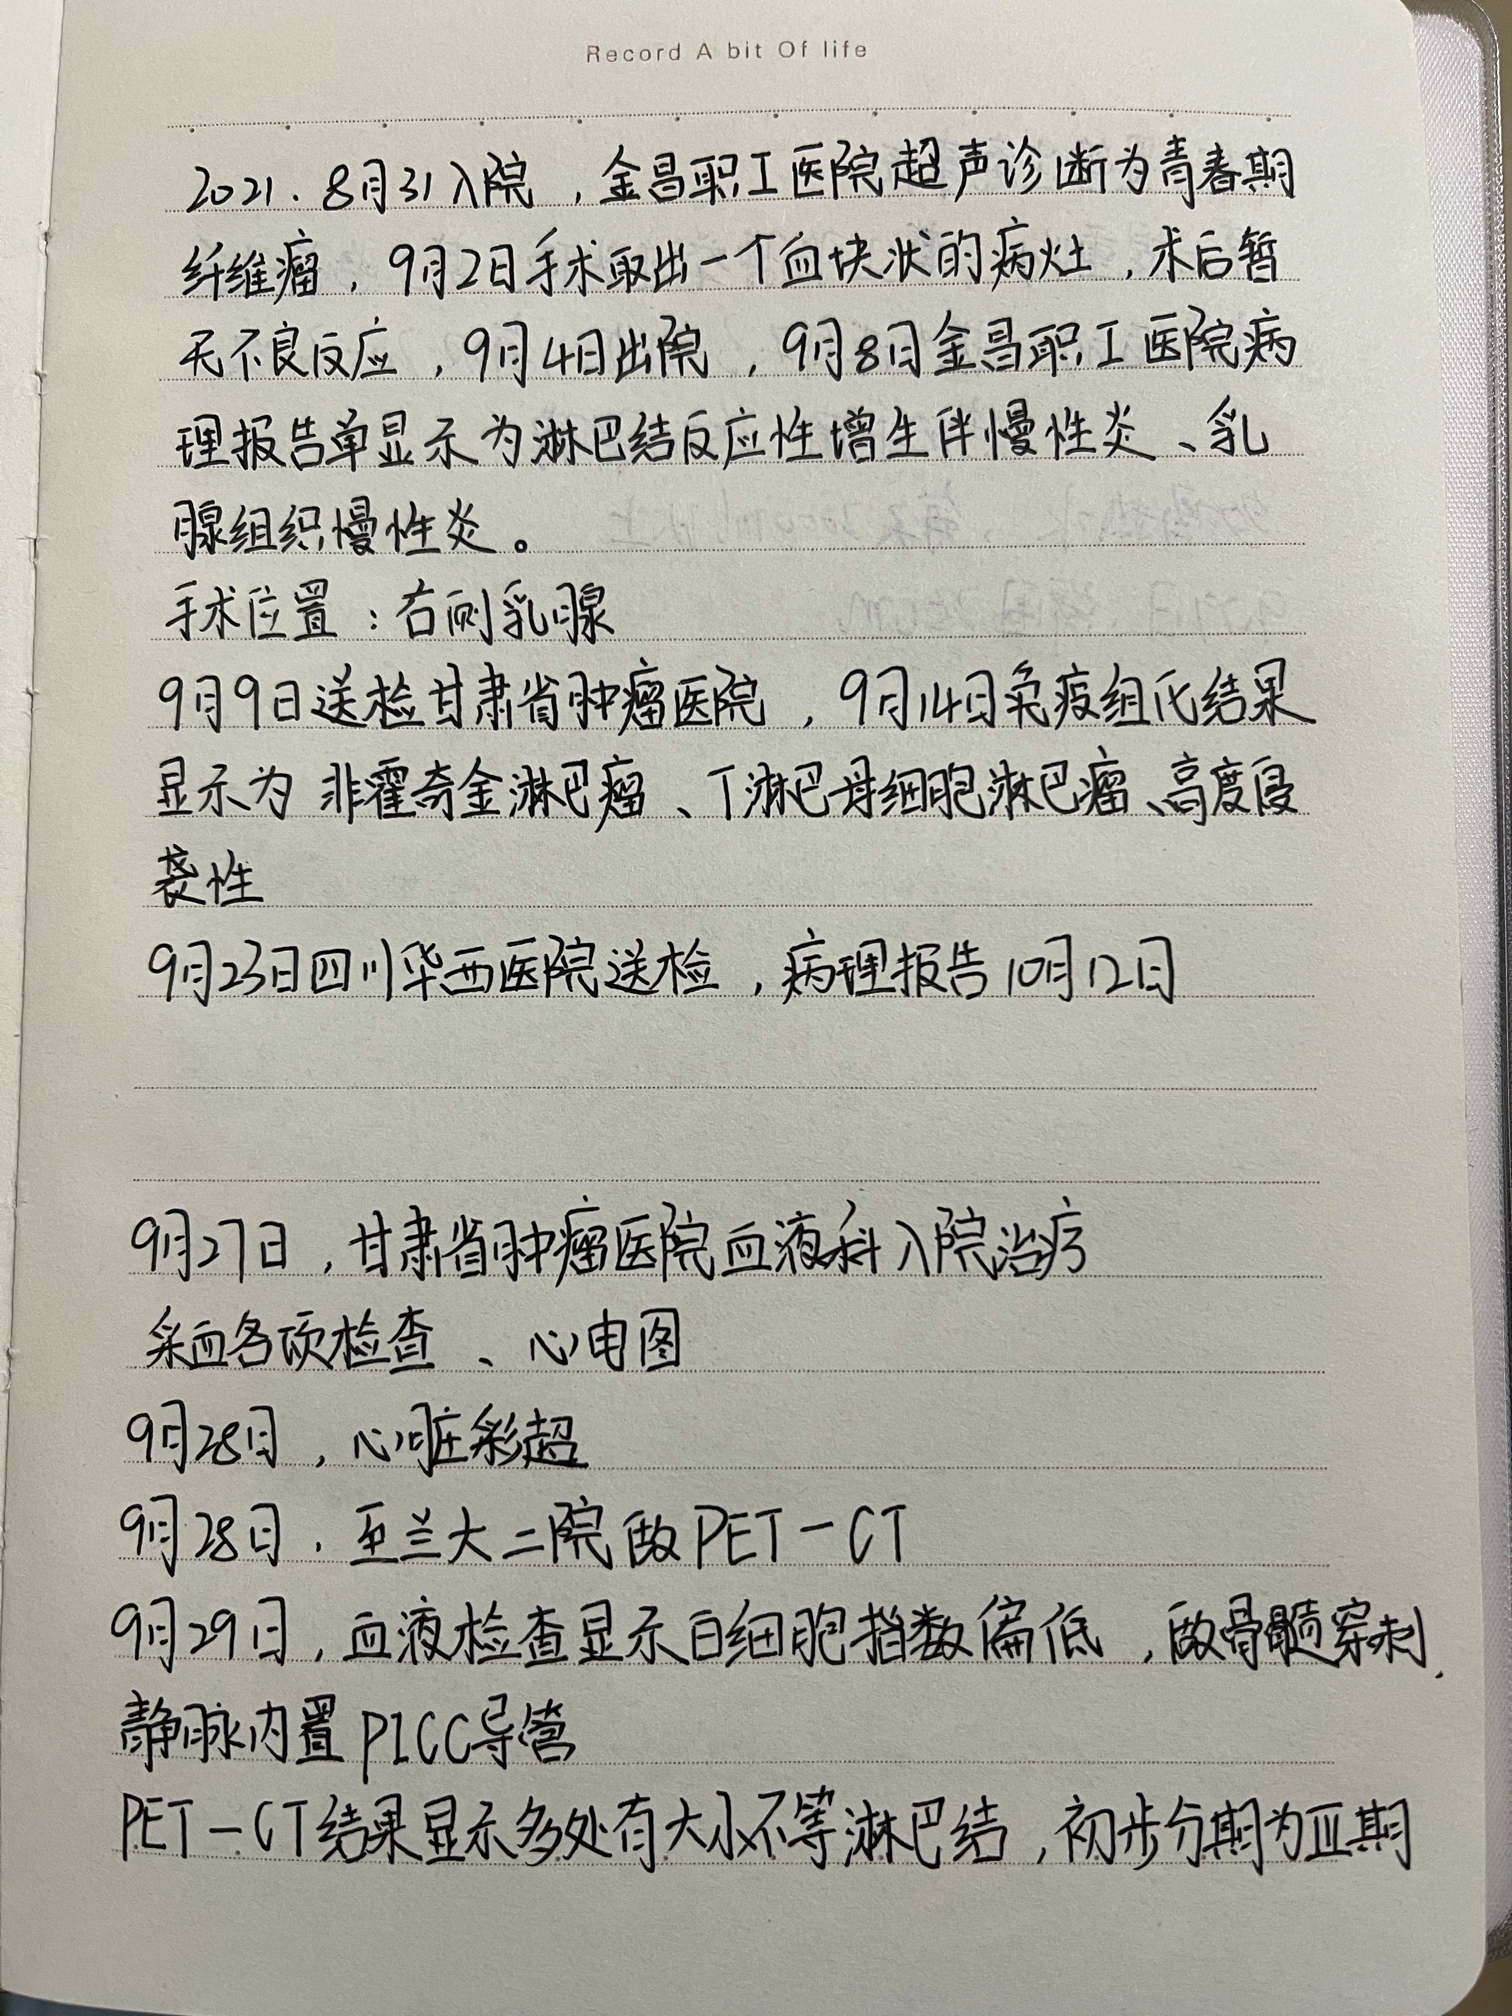 Record A bit Of life
2021.8月31入院，金昌职工医院超声诊断为青春期
纤维瘤，9月2日手术取出一个血块状的病灶，术后暂
无不良反应，9月4日出院，9月8日金昌职工医院病
理报告单显示为淋巴结反应性增生伴慢性炎、乳
腺组织慢性炎。
手术位置：右侧乳腺
9月9日送检甘肃省肿瘤医院，9月14日免疫组化结果
显示为 非霍奇金淋巴瘤、T淋巴母细胞淋巴瘤、高度侵
袭性
9月23日四川华西医院送检，病理报告10月12日
9月27日，甘肃省肿瘤医院血液科入院治疗
采血各项检查、心电图
9月28日，心脏彩超
9月28日，至兰大二院做PET－CT
9月29日，血液检查显示白细胞指数偏低，做骨髓穿刺、
静脉内置PICC导管
PET－CT结果显示多处有大小不等淋巴结，初步分期为Ⅲ期